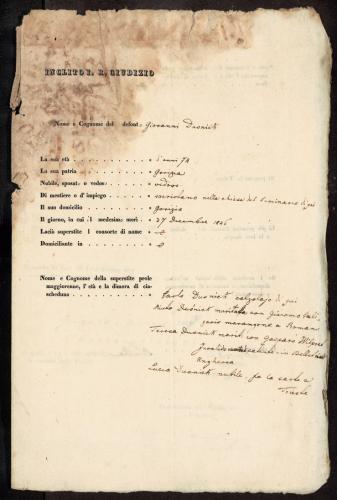 INCLITO I. R. GIUDIZIO
Nome e Cognome del defont: Giovanni Dusnich
La sua età . . . . . . . . . d'anni 74
La sua patria . . . . . . . . Gorizia
Nubile, sposato o vedov: . . . . vedovo
Di mestiere o d' impiego . . . . nella chiesa del Seminario di qui
Il suo domicilio . . . . . . . Gorizia
Il giorno, in cui il medesimo morì . 27 Decembre 1846
Lascia superstite l consorte di nome
Domiciliante in . . . . . . . .
Nome e Cognome della superstite prole
maggiorenne, l' età e la dimora di cia-
scheduna . . . . . . . . . Paolo Dusnich calzolajo di qui
Dusnich maritata con Giacomo
marangone a Romans
Teresa Dusnich marit. con Gasparo
in
Ungheria
Lucia Dusnich nubile, fa la sarta a
Trieste